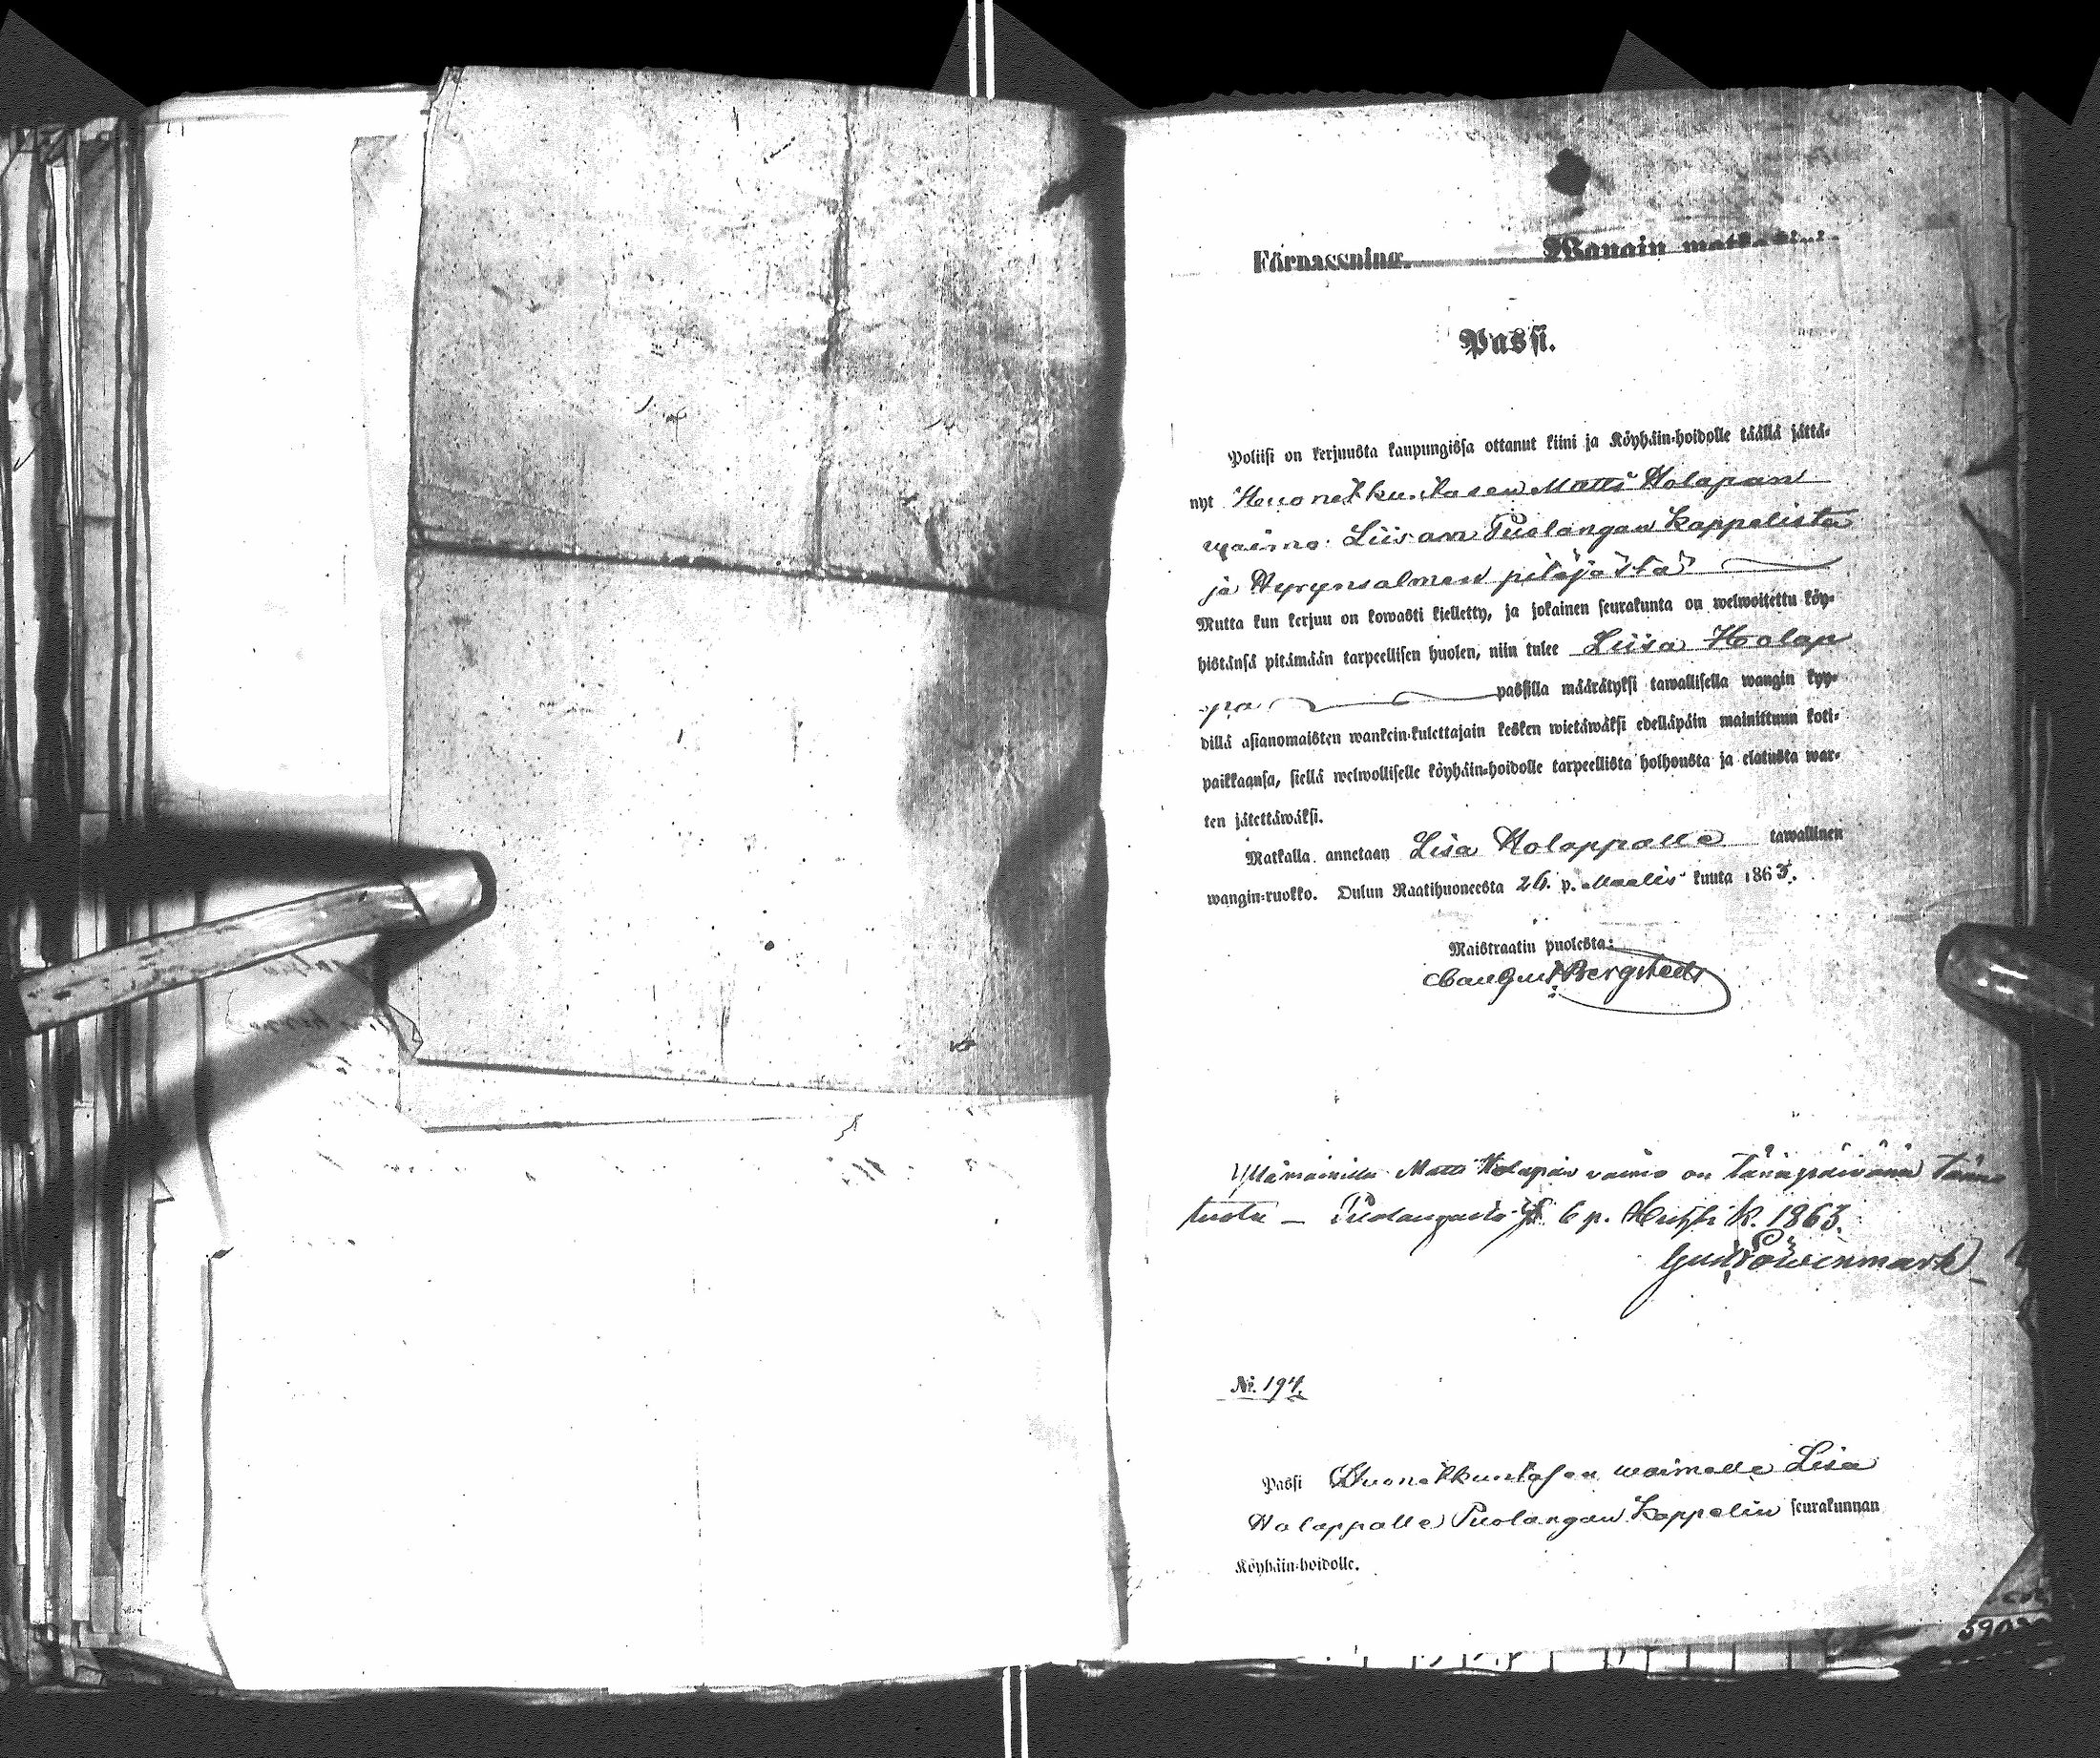 Förpassning. Wangin matkapassi.
Passi.
Poliisi on kerjuusta kaupungissa ottanut kiini ja Köyhäin-hoidolle täällä jättä-
nyt Huonekkuntasen Matts Holapan
waimo Liisan Puolangan Kappelista
ja Hyrynsalmen pitäjästä
Mutta kun kerjuu on kowasti kielletty, ja jokainen seurakunta on welwoitettu köy-
histänsä pitämään tarpeellisen huolen, niin tulee Liisa Holap
pa passilla määrätyksi tawallisella wangin kyy-
dillä asianomaisten wankein-kulettajain kesken wietäwäksi edelläpäin mainittuun koti-
paikkaansa, siellä welwolliselle köyhäin-hoidolle tarpeellista holhousta ja elatusta war-
ten jätettäwäksi.
Matkalla annetaan Lisa Holappalle tawallinen
wangin-ruokko. Oulun Raatihuoneesta 26. p. Maalis kuuta 1863.
Maistraatin puolesta:
Bergstedt
Yllämainittu Matts Holapan vaimo on tänäpäivänä tänne
tuotu – Puolangasta 6 p. Huhti k. 1863.
Gust Löwenmark
No. 194.
Passi Huonekkuntasen waimolle Lisa
Holappalle Puolangan Kappelin seurakunnan
Köyhäin-hoidolle.